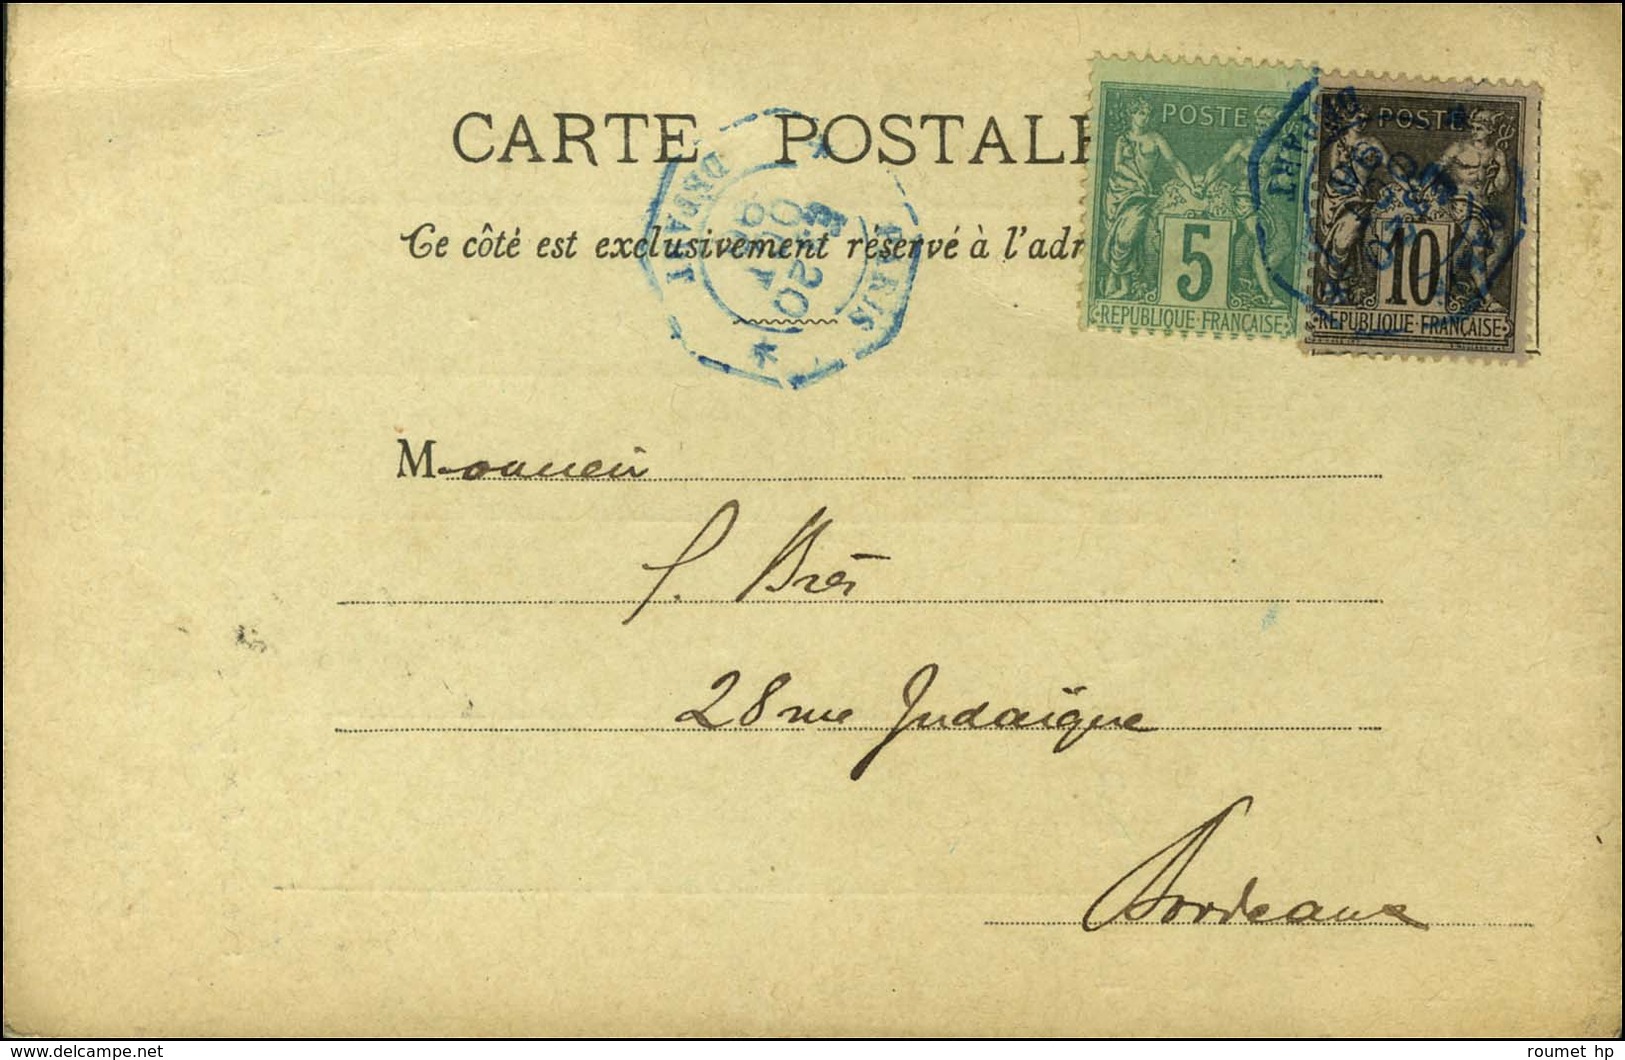 CARTE POSTALE
Ce côté est exclusivement réservé à l'adr
POSTE
5
REPUBLIQUE FRANÇAISE
POSTE
10
REPUBLIQUE FRANÇAISE
PARIS
DEPART
DEPART
Monsieur
P. Brès
28 rue Judaïque
Bordeaux
delcampe.net
roumet hp